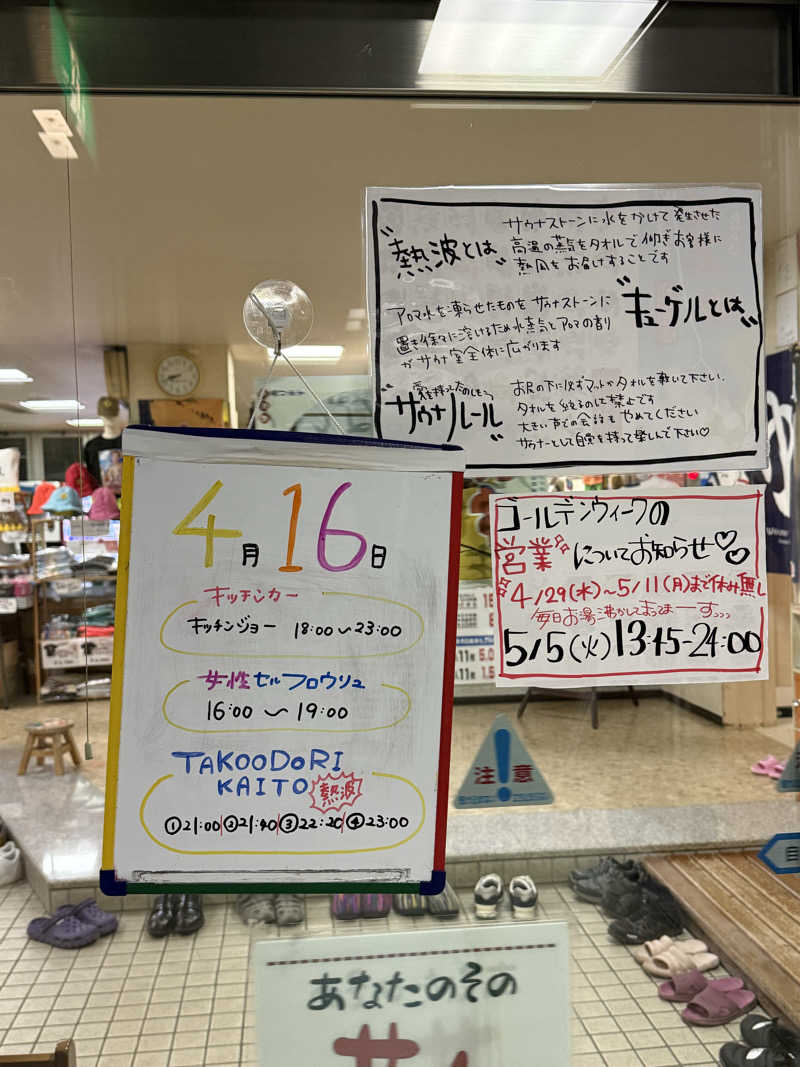 "熱波とは"
サウナストーンに水をかけて発生させた
高温の蒸気をタオルで仰ぎお客様に
熱風をお届けすることです
"キューゲルとは"
アロマ水を凍らせたものをサウナストーンに
置き徐々に溶けるため水蒸気とアロマの香り
がサウナ室全体に広がります
"サウナルール"
お尻の下に必ずマットかタオルを敷いて下さい.
タオルを絞るのは禁止です
大きい声での会話をやめてください
サウナーとして自覚を持って楽しんで下さい♡
4月16日
キッチンカー
キッチンジョー 18:00〜23:00
女性セルフロウリュ
16:00 〜 19:00
TAKOODORI
KAITO 熱波
①21:00|②21:40|③22:20|④23:00
ゴールデンウィークの
営業についてお知らせ♡♡
4/29(水)〜5/11(月)まで休み無し
毎日お湯沸かしてまっまーす
5/5(火)13:45-24:00
注意
あなたのその